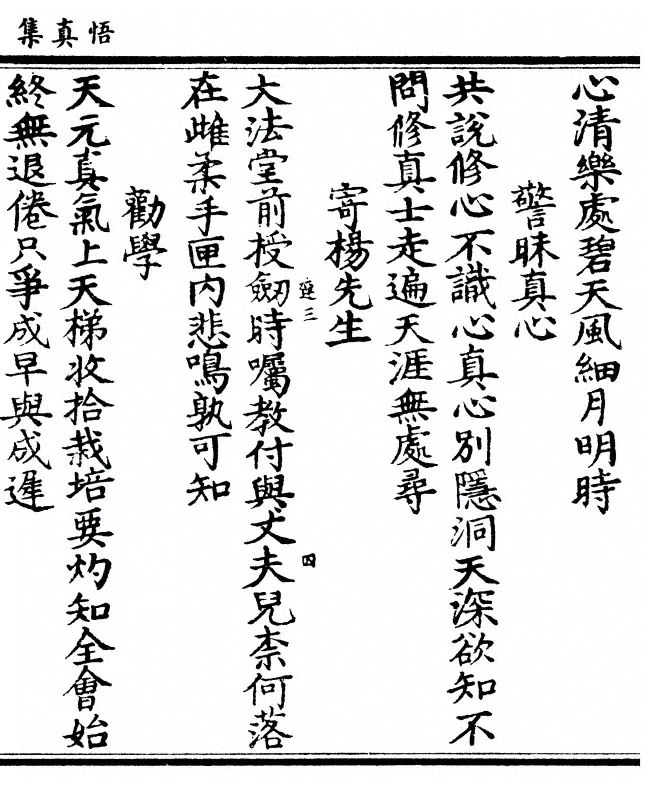 悟真集
心清樂處碧天風細月明時
警昧真心
共說修心不識心真心別隱洞天深欲知不
問修真士走遍天涯無處尋
寄楊先生
大法堂前授劒時囑教付與丈夫兒柰何落
遊三
四
在雌柔手匣内悲鳴孰可知
勸學
天元真氣上天梯收拾栽培要灼知全會始
終無退倦只爭成早與成遲